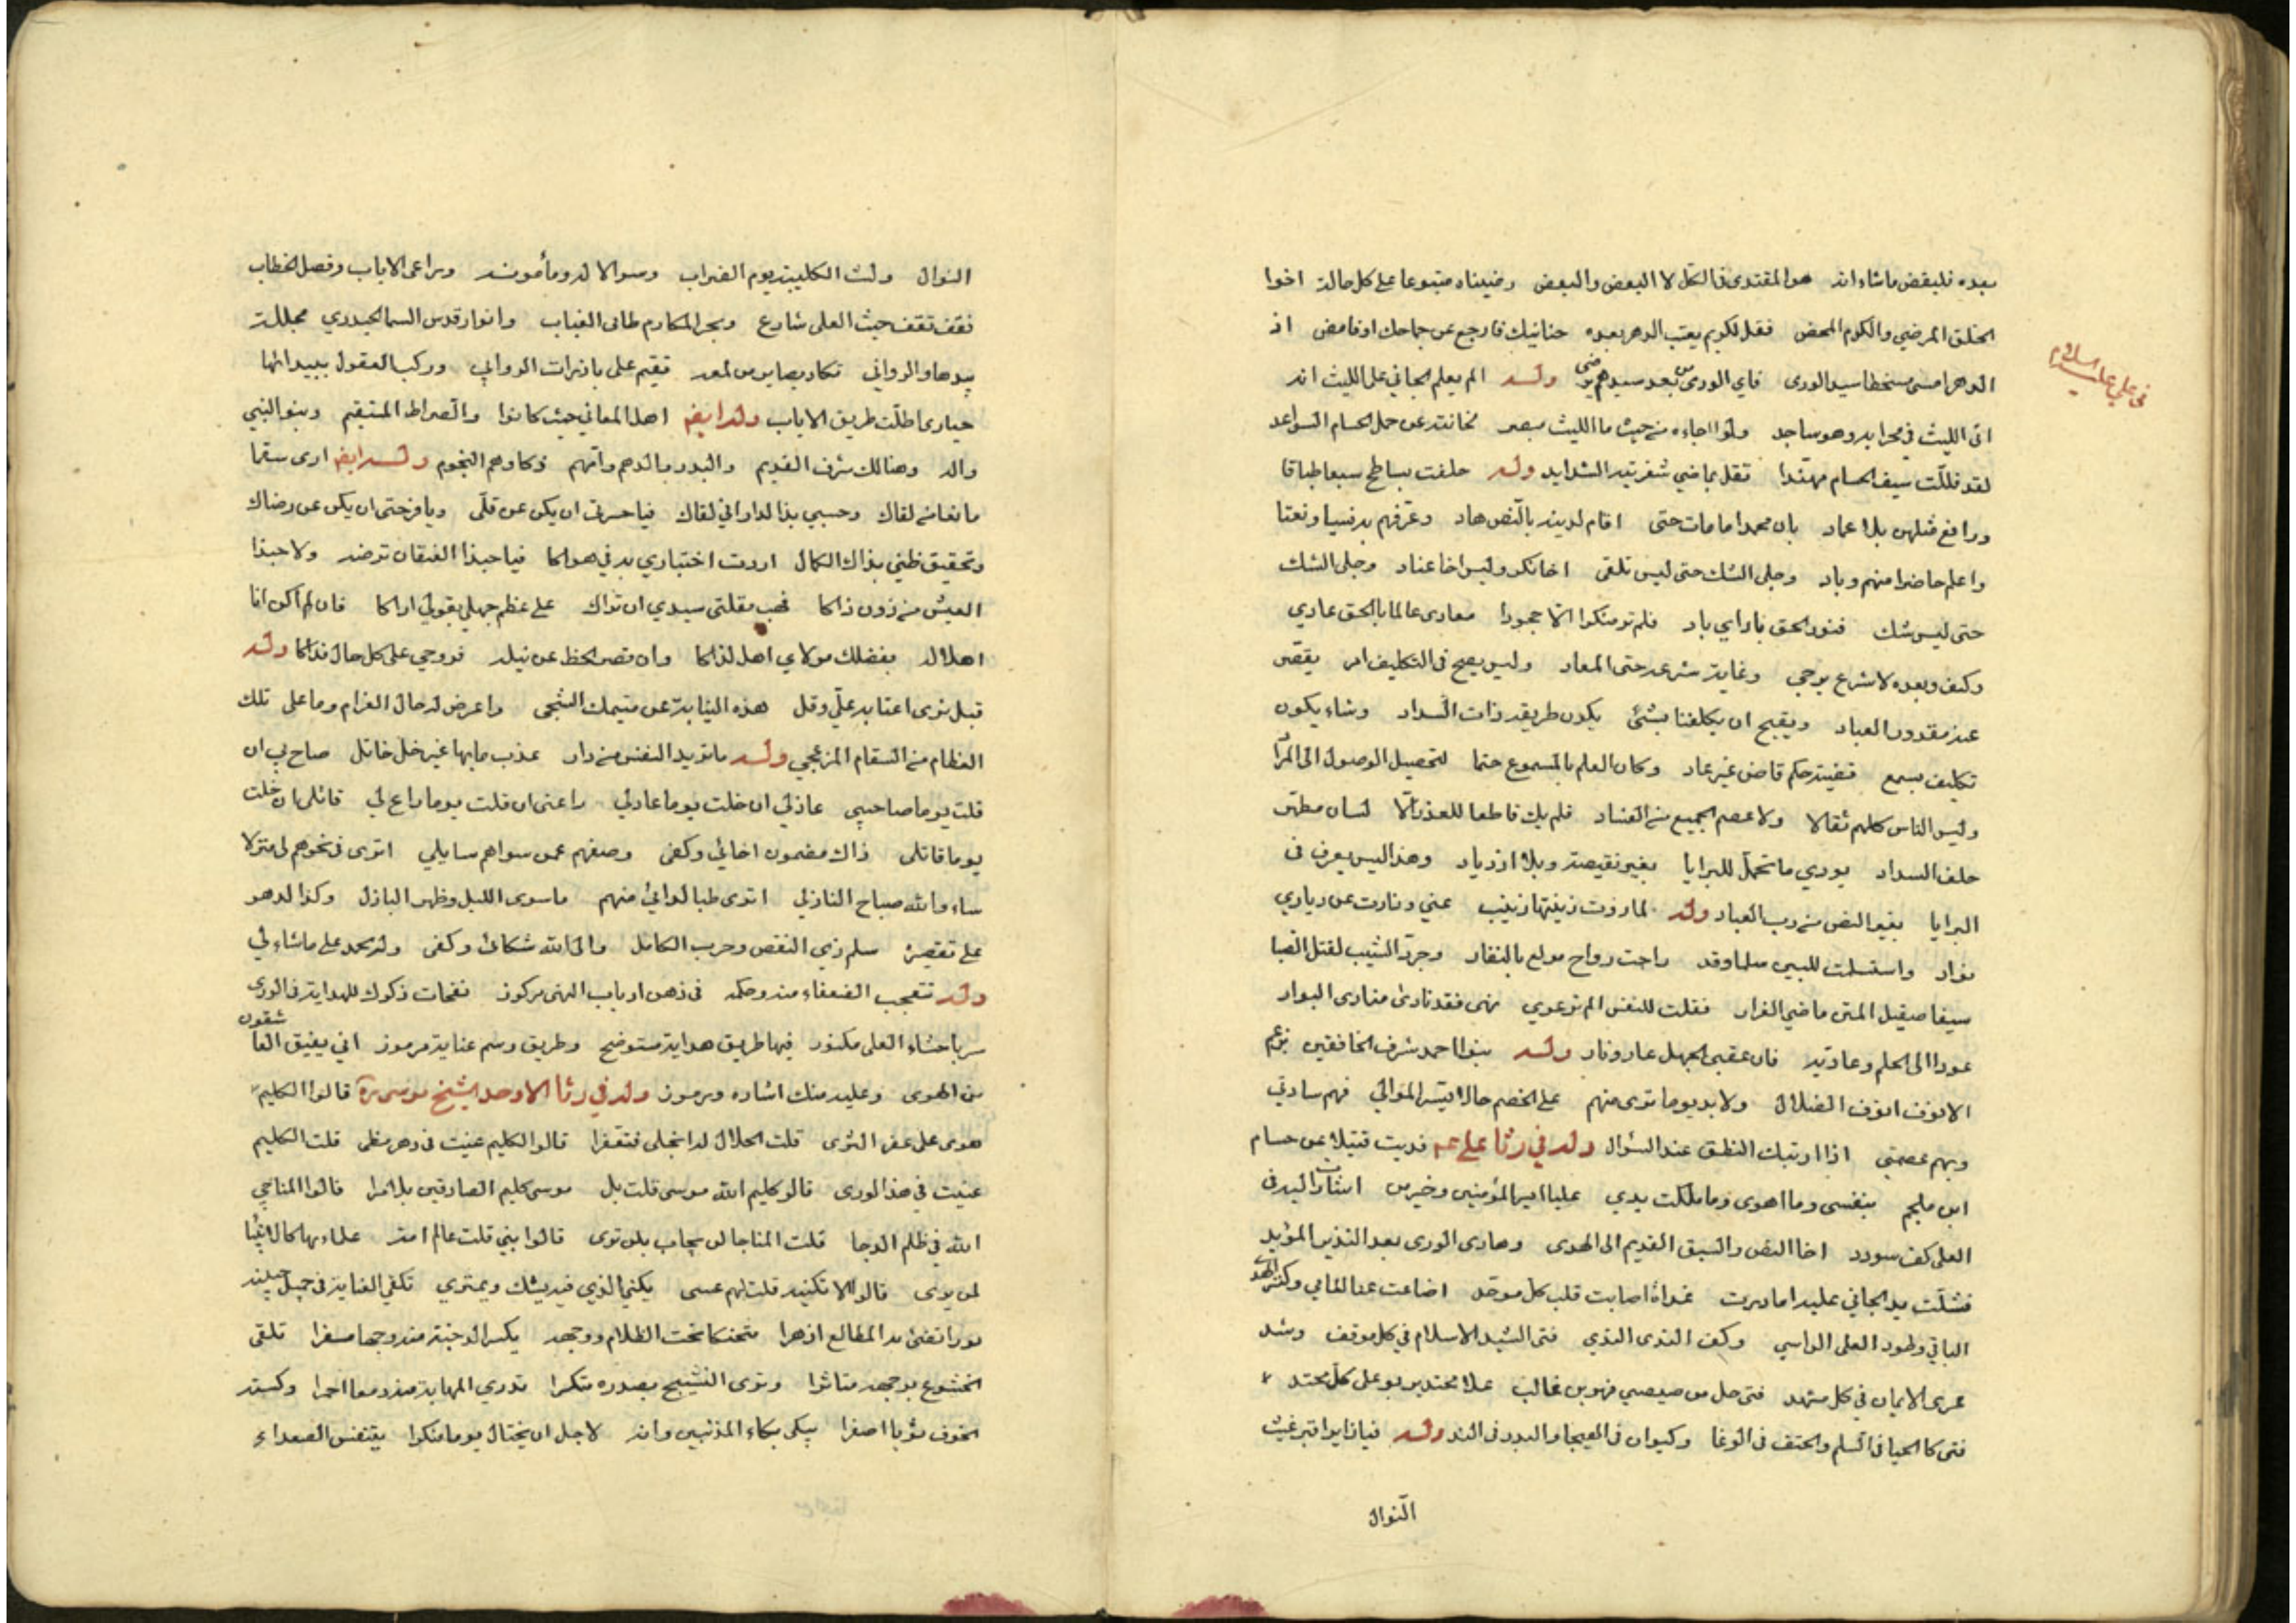 بعده فليقض ماشاء انه هو المقتدى فى الكل لا البعض والبعض رضيناه متبوعا على كل حالة اخوا
الخلق المرضي والكوم المحض فقل لكويم يعتب الدهر بعده حنانيك فارجع عن جماحك اوفامض اذ
الدهر امسى مسخطا سيد الورى فاي الورى من بعد سيدهم يرضى وله الم يعلم الجاني على الليث انه
فى علي عليه السلام
اتى الليث في محرابه وهو ساجد ولو اجاءه من حيث ما الليث مبصر لخانته عن حمل الحسام السواعد
لقد فللت سيف الحسام مهندا تفل بماضي شفرتيه الشدايد وله حلفت بساطح سبعا طباقا
ورافع مثلهن بلا عماد بان محمدا ما مات حتى اقام لدينه بالنص هاد وعرفهم به نسبا ونعتا
واعلم حاضرا منهم وباد وجلى الشك حتى ليس تلقى اخا نكر وليس اخا عناد وجلى الشك
حتى ليس شك فنور الحق باد اي باد فلم تر منكرا الا جحودا معادى عالما بالحق عادي
وكيف وبعده لا شرع يوحى وغاية شرعه حتى المعاد وليس يصح فى التكليف امر يقصر
عنه مقدور العباد ويقبح ان يكلفنا بشئ يكون طريقه ذات السداد وشاء يكون
تكليف بسمع قضيته حكم قاض غير عاد وكان العلم بالمسموع حتما لتحصيل الوصول الى المراد
وليس الناس كلهم ثقالا ولا عصم الجميع من الفساد فلم يك قاطعا للعذر الا لسان مطهر
حلف السداد يودي ما تحمل للبرايا بغير نقيصة وبلا ازدياد وهذا ليس يعرف فى
البرايا بغير النص من رب العباد وله لما زوت زينتها زينب عني ونارت عن دياري
نوار واستسلمت للبين سلما وقد راحت رواح مولع بالنفار وجرد الشيب لقتل الصبا
سيفا صقيل المتن ماضي الغرار فقلت للنفس الم ترعوي نهى فقد نادى منادى البوار
عودا الى الحلم وعاداته فان عقبى الجهل عار ونار وله بنوا احمد شرف الخافقين بزعم
الانوف انوف الضلال ولا بد يوما ترى منهم على الخصم حالا تيسر الموالي فهم سادتي
وبهم عصمتي اذا ارتبك النطق عند السؤال وله في رثا علي عم فديت قتيلا عن حسام
ابن ملجم بنفسى وما اهوى وما ملكت يدي عليا امير المؤمنين وخير من اشارت اليه فى
العلى كف سودد اخا النص والسبق القديم الى الهدى وهادى الورى بعد النذير المؤيد
فشلت يد الجاني عليه اما درت غداة اصابت قلب كل موحد اضاعت عنا للمامي وكنز الهدى
الباقي وطود العلى الراسي وكف الندى الندي فتى الشيد الاسلام في كل موقف وشد
عرى الايمان في كل مشهد فتى حل من صيصي فهر بن غالب علا محتد يربو على كل محتد
فتى كا الحيا فى السلم والحتف فى الوغا وكيوان فى الهيجا والبدر فى الند وله فيا زايرا قبر غيث
النوال
النوال وليث الكتيبة يوم الضراب وسوالا له ومأمونه وراعى الاياب وفصل الخطاب
فقف تقف حيث العلى شارع وبحر المكارم طامى العباب وانوار قدس السما الحيدري مجللة
بيدها والروابي تكاد بصاير من لمعه تقيم على باذرات الروابي وركب العقول ببيدائها
حيارى اظلت طريق الاياب وله ايضا اهل المعاني حيث كانوا والصراط المستقيم وبنو النبي
واله وهنالك شرف القديم والبدر بالدهم واتهم ذكاؤهم النجوم وله ايضا ارى سقما
مانعا من لقاك وحسبي بذا لدا اني لقاك فيا حسرتى ان يكن عن قلى ويا فرحتى ان يكن عن رضاك
وتحقيق ظني بذاك الكمال اردت اختباري به في هواكا فيا حبذا الفتقان ترضه ولا حبذا
العيش من دون ذاكا فحب بمقلتى سيدي ان تراك على عظم جهلي بقولي اراكا فان لم اكن انا
اهلا له بفضلك مولاي اهل لذاكا وان قصر الحظ عن نيله فروحي على كل حال فداكا وله
قبل ثرى اعتابه على وقل هذه النيابة عن متيمك الشجى واعرض له حال الغرام وما على تلك
العظام من السقام المزعجي وله ما تريد النفس من دار عذب ما بها غير خل خاتل صاح بي ان
قلت يوما صاحبي عاذلي ان خلت يوما عاذلي راعنى ان قلت يوما راع لي قاتلى ان خلت
يوما قاتلى ذاك مضمون اخائي وكفى وصفهم عمن سواهم سايلي اترى فى نحوهم لى منزلا
ساء والله صباح النازلي اترى طبا لدائي منهم ما سوى الليل وظهر البازل وكذا لدهر
على تقصيره سلم ذي النقص وحرب الكامل والى الله شكائى وكفى وله نحمد على ماشاء لي
وله تتعجب الضعفاء منه وحكمه فى ذهن ارباب النهى مركوز نفحات ذكرك للهداية فى الورى
سر باحشاء العلى مكنوز فيها طريق هداية مستوضح وطريق وسم عناية مرموز اني يفيق العاشقون
من الهوى وعليه منك اشاره ورموز وله في رثا الاوحد الشيخ موسى ره قالوا الكليم
هوى على عفر الثرى قلت الجلال له انجلى فتعفرا قالوا الكليم عنيت فى دهر مظى قلت الكليم
عنيت في هذا لورى قالو كليم الله موسى قلت بل موسى كليم الصادقين بلا مرا قالوا المناجي
الله في ظلم الدجا قلت المناجا لن يجاب بلن ترى قالوا بني قلت عالم امة علماءها كالانبيا
لمن يرى قالوا الا تكنيه قلت لهم عسى يكنى الذي فيه يشك ويمتري تكفي العناية فى جميل جبينه
نورا تضئ به المطالع ازهرا متحنكا تحت الظلام ووجهه يكسو الدجنة منه وجها مسفرا تلقى
الخشوع بوجهه متاثرا وترى النشيج بصدره متكسرا تدري المهابة منه دمعا احمرا وكسته
الخوف ثوبا اصفرا يبكى بكاء المذنبين وانه لاجل ان يختال يوما منكرا يتنفس الصعداء